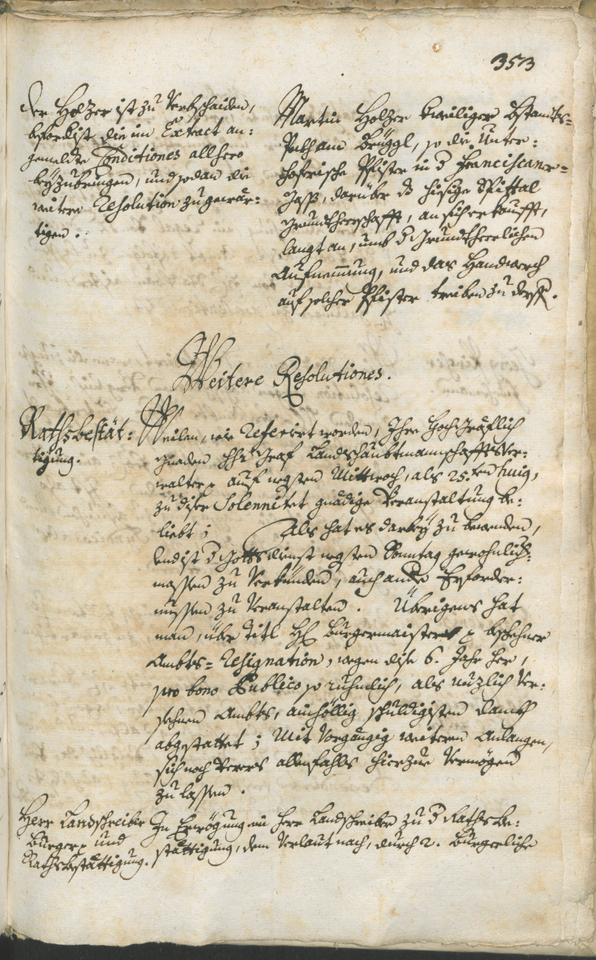 353
Der Holzer ist zu verbschaiden,
die im Extract an-
gemelte Conditiones allhero
beyzubringen, und sodan die
weitere Resolution zu gewär-
tigen.
Martin Holzer
Pekh am Brüggl, so die Unter-
hoferische Pfister in d Franciscaner-
gass, darüber dz hiesige Spittal
Grundtherrschafft, an sich erkaufft,
langt an, umb d Grundtherrlichen
Aufnemmung, und das Handwerch
auf solcher Pfister treiben zu derffen.
Weitere Resolutiones.
Rathsbestät-
tigung.
Weilen, wie Referirt worden, Ihro Hochgräflich
Gnaden H: Graf Landtshaubtmanschaffts Ver-
walter auf negsten Mittwoch, als 25.ten huig,
zu diser Solennitet gnädige Veranstaltung be-
liebt; Als hat es darbey zu bewenden,
und ist d Gottsdienst negsten Sonntag gewohnlich-
massen zu verkünden, auch andre Erforder-
nussen zu veranstalten. Übrigens hat
man, über Titl H: Burgermaisters beschehner
Ambts-Resignation, wegen dise 6. Jahr her,
pro bono Publico so ruhmlich, als nuzlich ver-
sehnen Ambts, ainhöllig schuldigisten Danckh
abgestattet; Mit vorgängig weiteren Anlangen,
sich noch ferers allenfahls hierzue vermögen
zu lassen.
Herr Landschreiber
Burger und
Rathsbestättigung.
In Erwögung ein Herr Landschreiber zu d Rathsbe-
stättigung, dem Verlaut nach, durch 2. Burgerliche